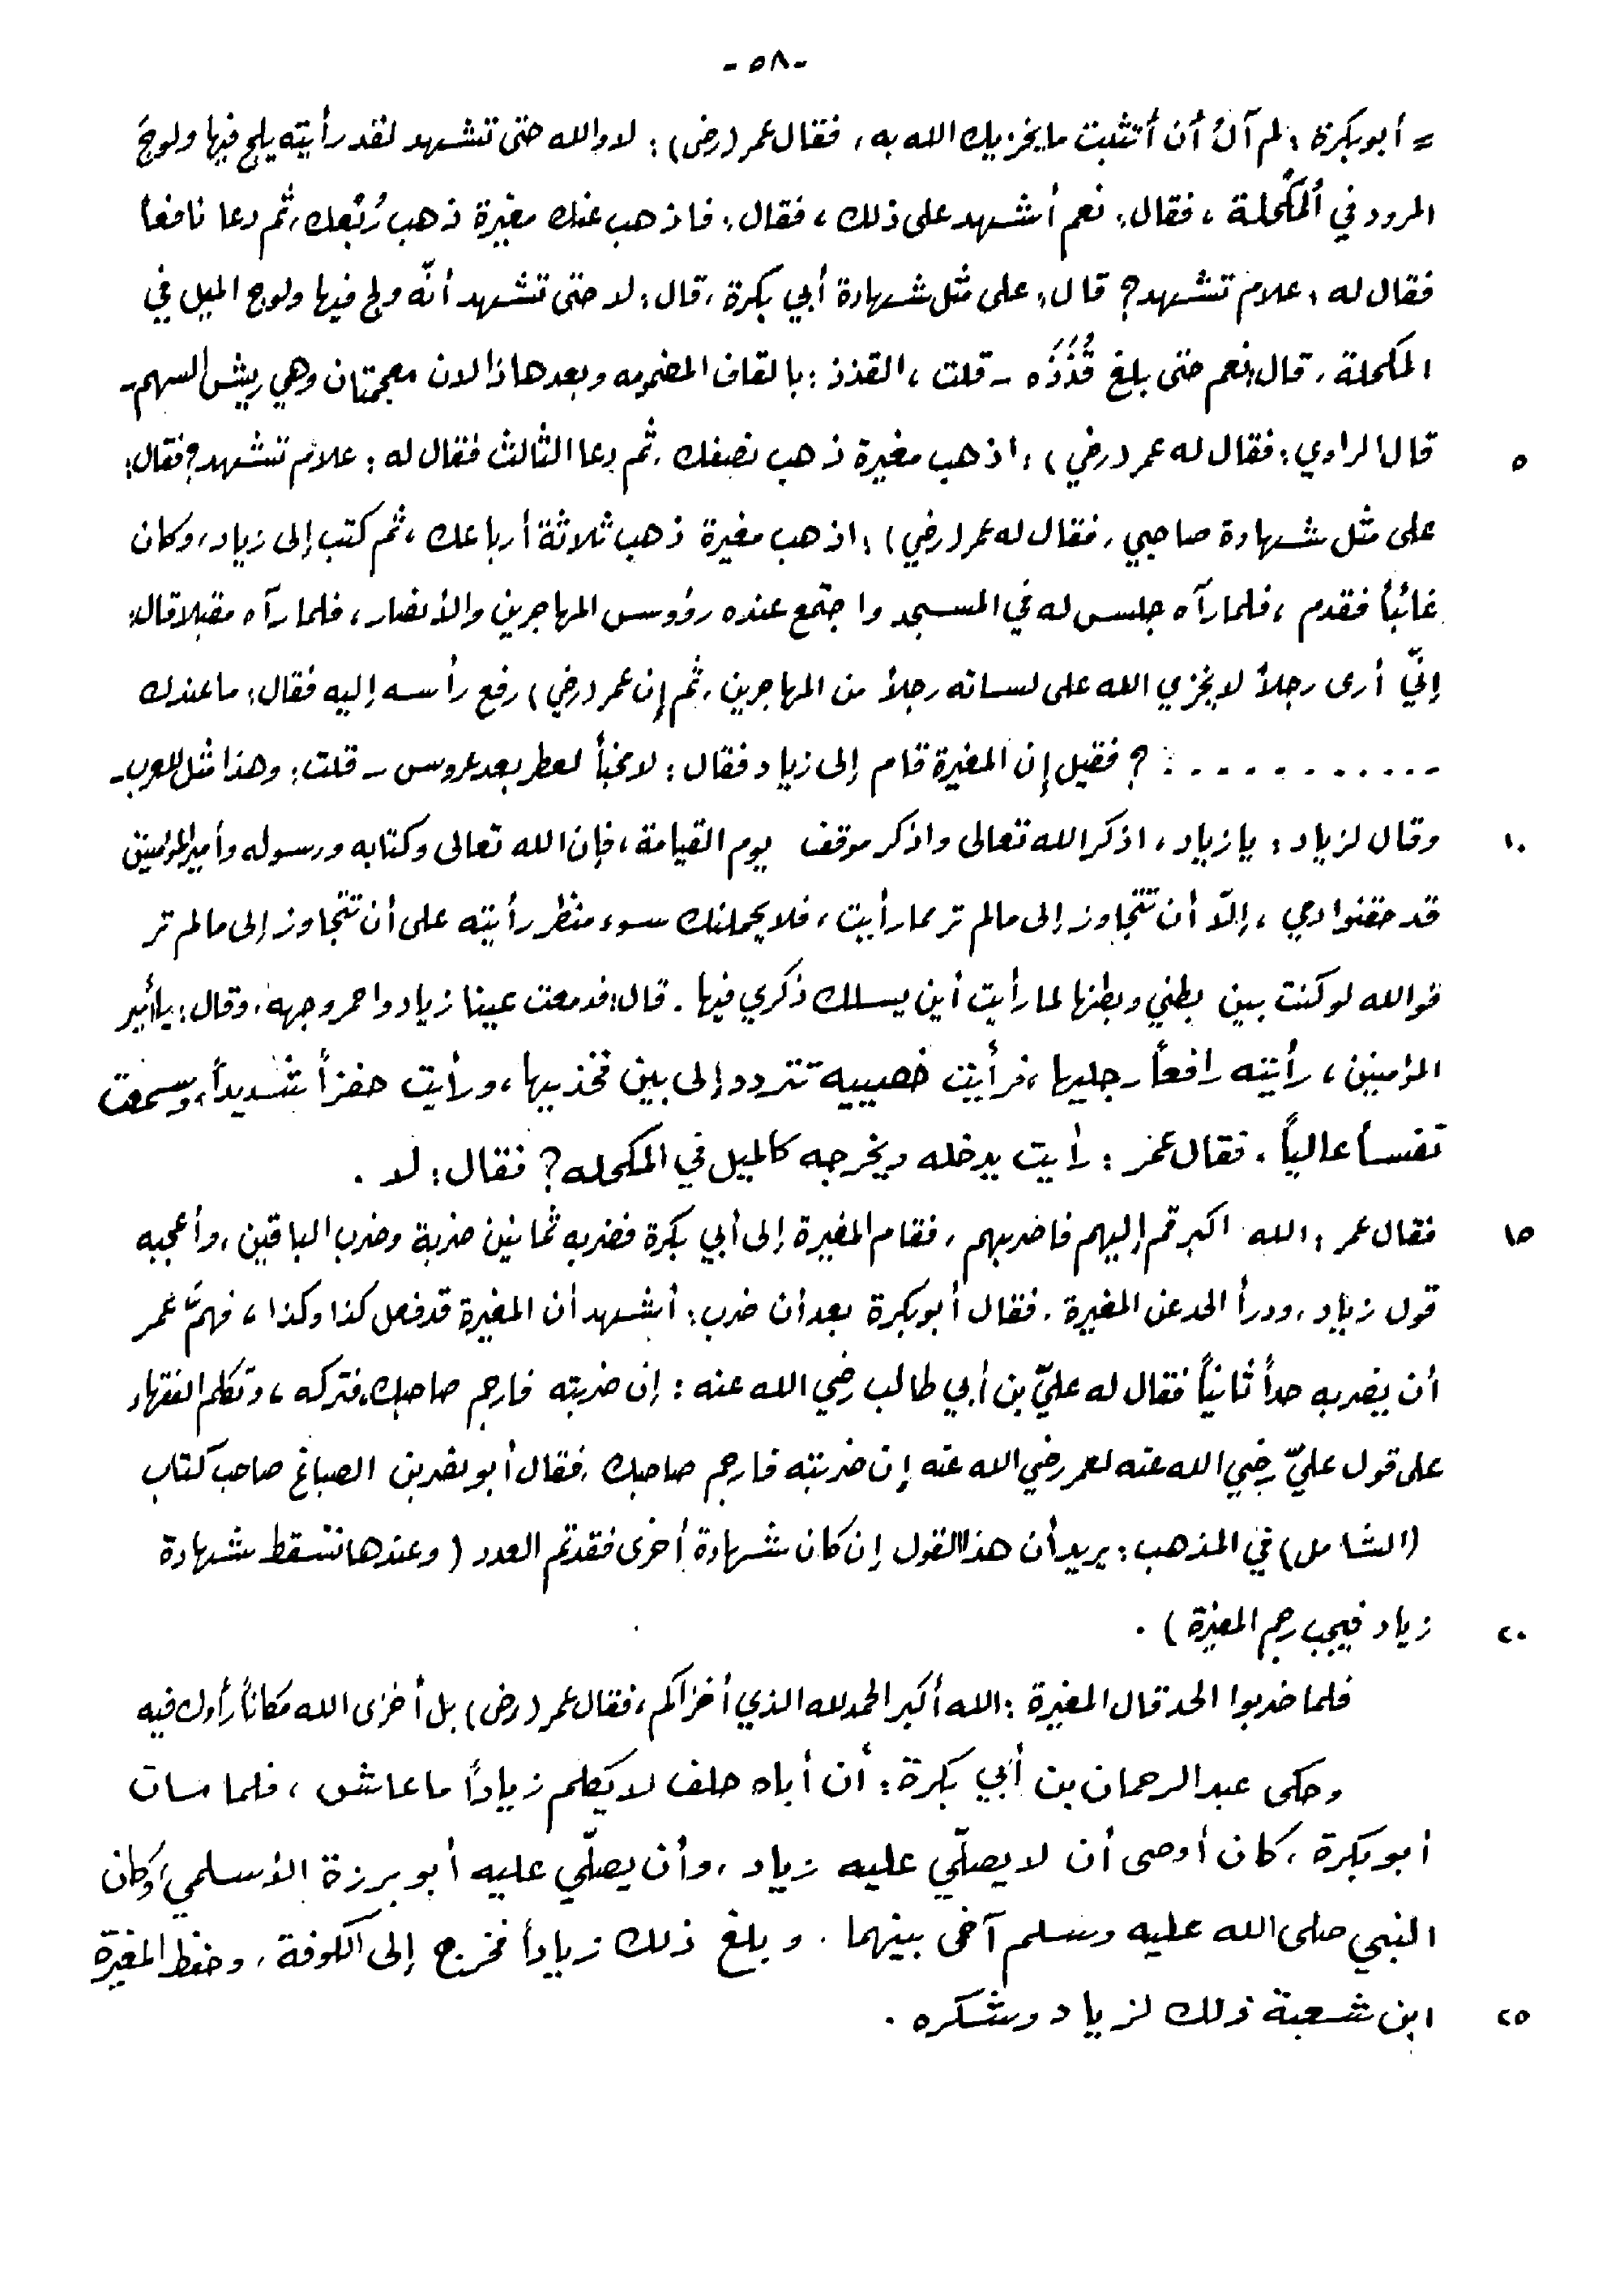 -٥٨-
= أبو بكرة : لم آلُ أن أتثبت ما يخزيك الله به ، فقال عمر (رض) : لا والله حتى تشهد لقد رأيته يلج فيها ولوجَ
المرود في المُكحُلة ، فقال : نعم أشهد على ذلك ، فقال : فاذهب عنك مغيرة ذهب رُبُعك ، ثم دعا نافعاً
فقال له : علام تشهد ؟ قال : على مثل شهادة أبي بكرة ، قال : لا حتى تشهد أنّه ولج فيها ولوج الميل في
المكحلة ، قال : نعم حتى بلغ قُذَذَه - قلت ، القذذ : بالقاف المضمومه وبعدها ذالان معجمتان وهي ريش السهم -
٥ قال الراوي : فقال له عمر (رضي) : اذهب مغيرة ذهب نصفك ، ثم دعا الثالث فقال له : علام تشهد ؟ فقال :
على مثل شهادة صاحبي ، فقال له عمر (رضي) : اذهب مغيرة ذهب ثلاثة أرباعك ، ثم كتب إلى زياد ، وكان
غائباً فقدم ، فلما رآه جلس له في المسجد واجتمع عنده رؤوس المهاجرين والأنصار ، فلما رآه مقبلا قال :
إنّي أرى رجلاً لا يخزي الله على لسانه رجلاً من المهاجرين ، ثم إن عمر (رضي) رفع رأسه إليه فقال : ما عندك
. . . . . . . . . . : ؟ فقيل إن المغيرة قام إلى زياد فقال : لا مخبأ لعطر بعد عروس - قلت : وهذا مثل للعرب -
١٠ وقال لزياد : يا زياد ، اذكر الله تعالى واذكر موقف يوم القيامة ، فإن الله تعالى وكتابه ورسوله وأمير المؤمنين
قد حقنوا دمي ، إلّا أن تتجاوز إلى ما لم تر مما رأيت ، فلا يحملنك سوء منظر رأيته على أن تتجاوز إلى ما لم تر
فوالله لو كنت بين بطني وبطنها لما رأيت أين يسلك ذكري فيها . قال : فدمعت عينا زياد واحمر وجهه ، وقال : يا أمير
المؤمنين ، رأيته رافعاً رجليها ، فرأيت خصييه تتردد إلى بين فخذيها ، ورأيت حفزاً شديداً ، وسمعت
نفساً عالياً . فقال عمر : رأيت يدخله ويخرجه كالميل في المكحله ؟ فقال : لا .
١٥ فقال عمر : الله اكبر قم إليهم فاضربهم ، فقام المغيرة إلى أبي بكرة فضربه ثمانين ضربة وضرب الباقين ، وأعجبه
قول زياد ، ودرأ الحد عن المغيرة . فقال أبو بكرة بعد أن ضرب : أشهد أن المغيرة قد فعل كذا وكذا ، فهمَّ عمر
أن يضربه حداً ثانياً فقال له عليّ بن أبي طالب رضي الله عنه : إن ضربته فارجم صاحبك ، فتركه ، وتكلم الفقهاء
على قول عليّ رضي الله عنه لعمر رضي الله عنه إن ضربته فارجم صاحبك ، فقال أبو نصر بن الصباغ صاحب كتاب
(الشامل) في المذهب : يريد أن هذا القول إن كان شهادة أخرى فقد تم العدد ( وعندها تسقط شهادة
٢٠ زياد فيجب رجم المغيرة ) .
فلما ضربوا الحد قال المغيرة : الله أكبر الحمد لله الذي أخزاكم ، فقال عمر (رض) بل أخزى الله مكاناً رأوك فيه
وحكى عبد الرحمان بن أبي بكرة : أن أباه حلف لا يكلم زياداً ما عاش ، فلما مات
أبو بكرة ، كان أوصى أن لا يصلّي عليه زياد ، وأن يصلّي عليه أبو برزة الأسلمي ، وكان
النبي صلى الله عليه وسلم آخى بينهما . وبلغ ذلك زياداً فخرج إلى الكوفة ، وحفظ المغيرة
٢٥ ابن شعبة ذلك لزياد وشكره .